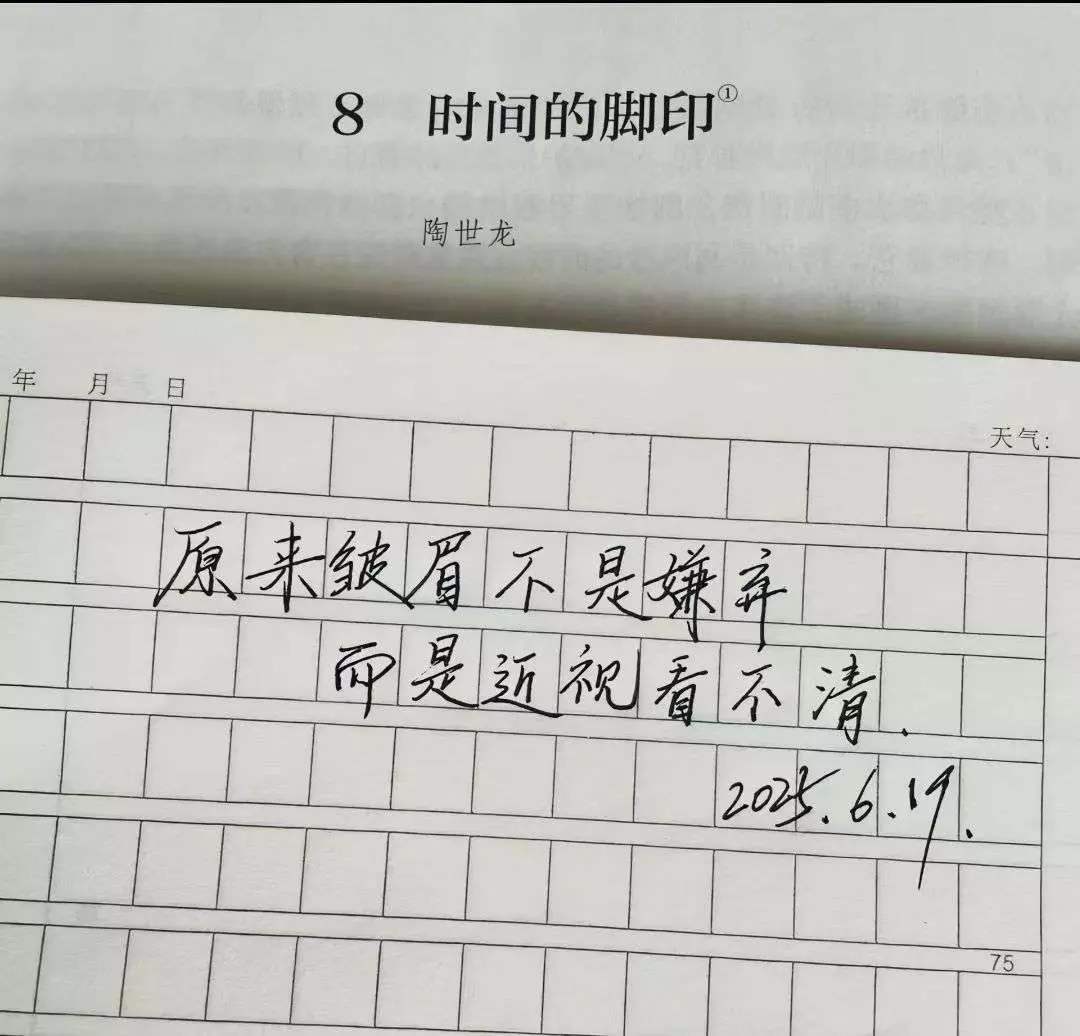 8 时间的脚印①
陶世龙
年 月 日
天气:
原来皱眉不是嫌弃
而是近视看不清.
2025.6.19.
75